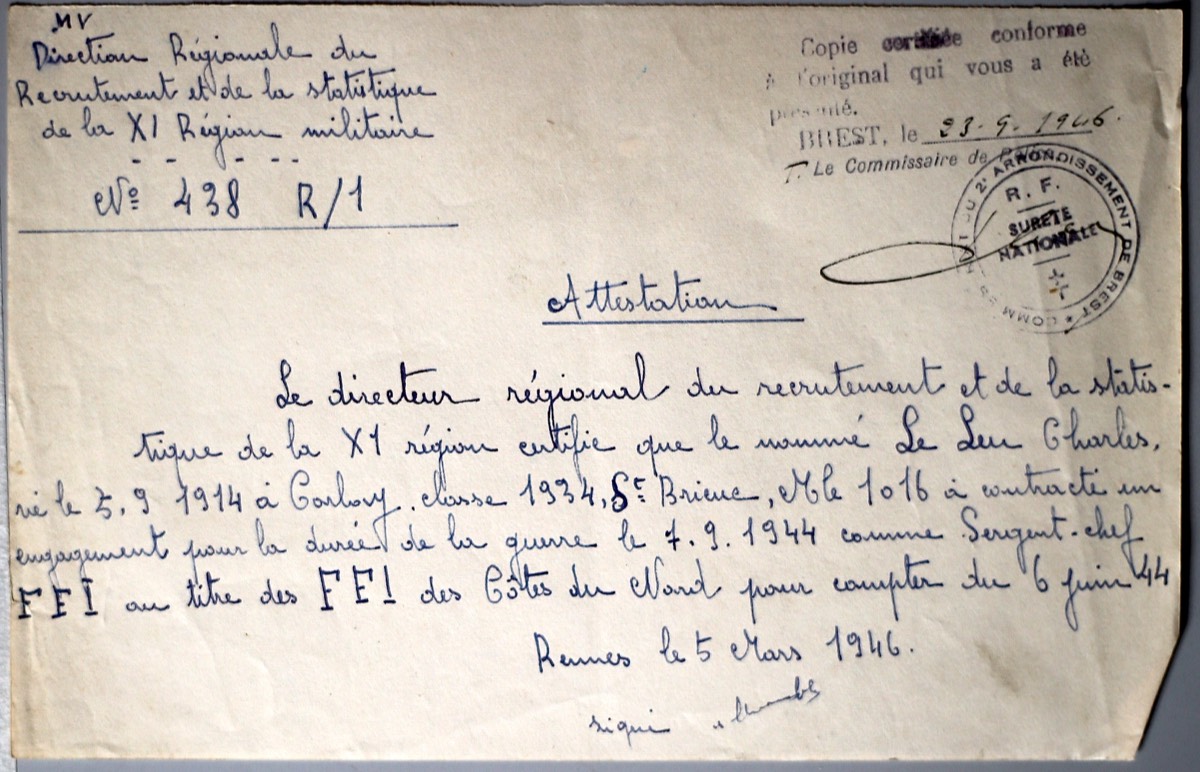 MV
Direction Régionale du
Recrutement et de la statistique
de la XI Région militaire
- - - - -
N° 438 R/1
Copie certifiée conforme
à l'original qui vous a été
présenté.
BREST, le 23-9-1946.
P. Le Commissaire de Police
COMM DU 2e ARRONDISSEMENT DE BREST *
R. F.
SURETÉ
NATIONALE
Attestation
Le directeur régional du recrutement et de la statis-
tique de la XI région certifie que le nommé Le Leu Charles,
né le 5.9 1914 à Corlay, classe 1934, St Brieuc, Mle 1016 à contracté un
engagement pour la durée de la guerre le 7.9.1944 comme Sergent-chef
FFI au titre des FFI des Côtes du Nord pour compter du 6 juin 44
Rennes le 5 Mars 1946.
signé